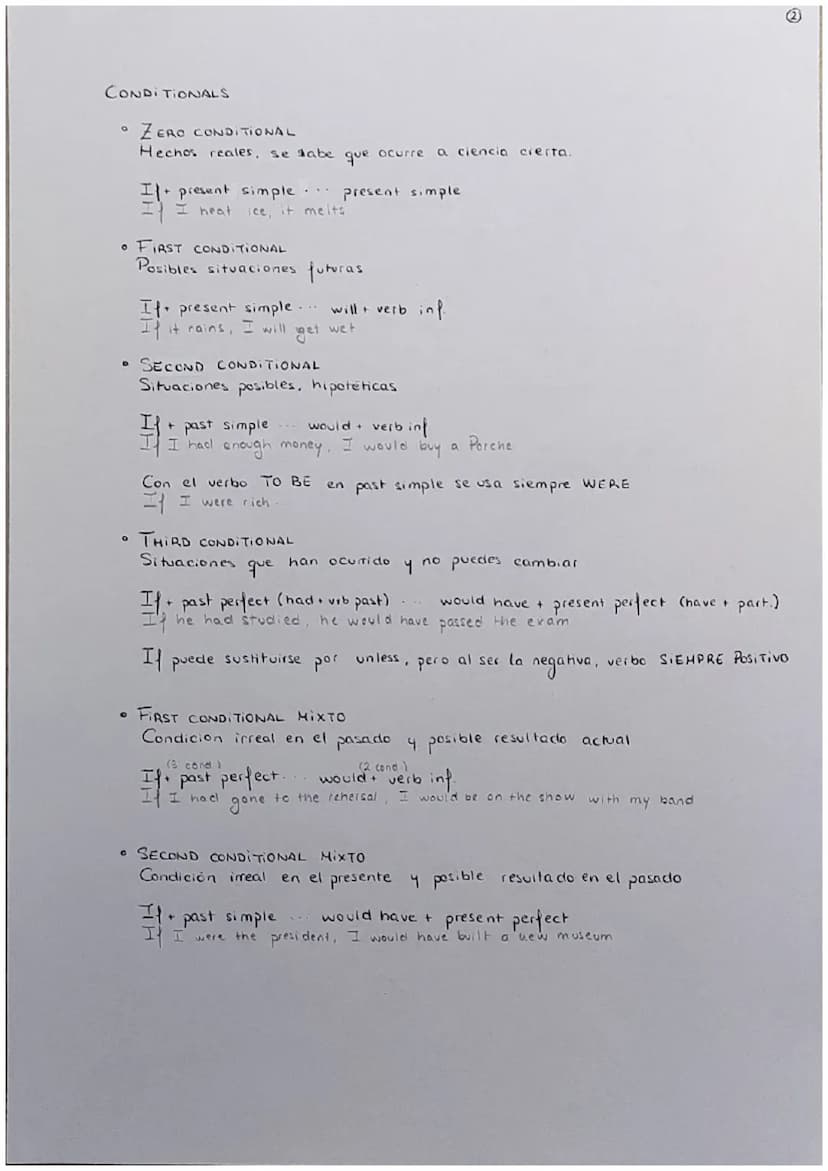 ②
CONDITIONALS
• ZERO CONDITIONAL
Hechos reales, se sabe que ocurre a ciencia cierta.
If + present simple ... present simple
If I heat ice, it melts
• FIRST CONDITIONAL
Posibles situaciones futuras
If + present simple ... will + verb inf.
If it rains, I will get wet
• SECOND CONDITIONAL
Situaciones posibles, hipotéticas
If + past simple ... would + verb inf
If I had enough money, I would buy a Porche
Con el verbo TO BE en past simple se usa siempre WERE
If I were rich.
• THIRD CONDITIONAL
Situaciones que han ocurrido y no puedes cambiar
If + past perfect (had + vrb past) ... would have + present perfect (have + part.)
If he had studied, he would have passed the exam
If puede sustituirse por unless, pero al ser la negativa, verbo SIEMPRE POSITIVO
• FIRST CONDITIONAL MIXTO
Condición irreal en el pasado y posible resultado actual
(3 cond.) (2 cond.)
If + past perfect ... would + verb inf.
If I had gone to the rehersal, I would be on the show with my band
• SECOND CONDITIONAL MIXTO
Condición irreal en el presente y posible resultado en el pasado
If + past simple ... would have + present perfect
If I were the president, I would have built a new museum